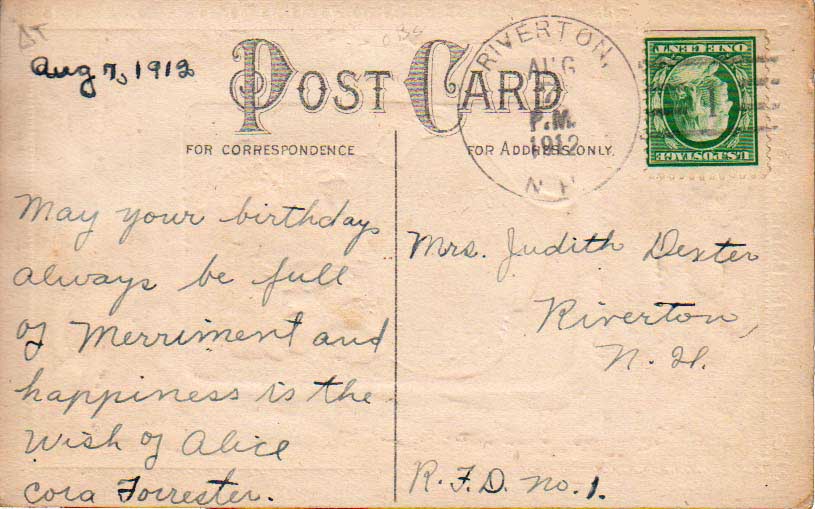 Aug 7, 1912
POST CARD
RIVERTON,
AUG
P.M.
1912
N.H.
U.S. POSTAGE
ONE CENT
FOR CORRESPONDENCE
FOR ADDRESS ONLY.
May your birthdays
always be full
of Merriment and
happiness is the
wish of Alice
Cora Forrester.
Mrs. Judith Dexter
Riverton,
N. H.
R.F.D. No. 1.